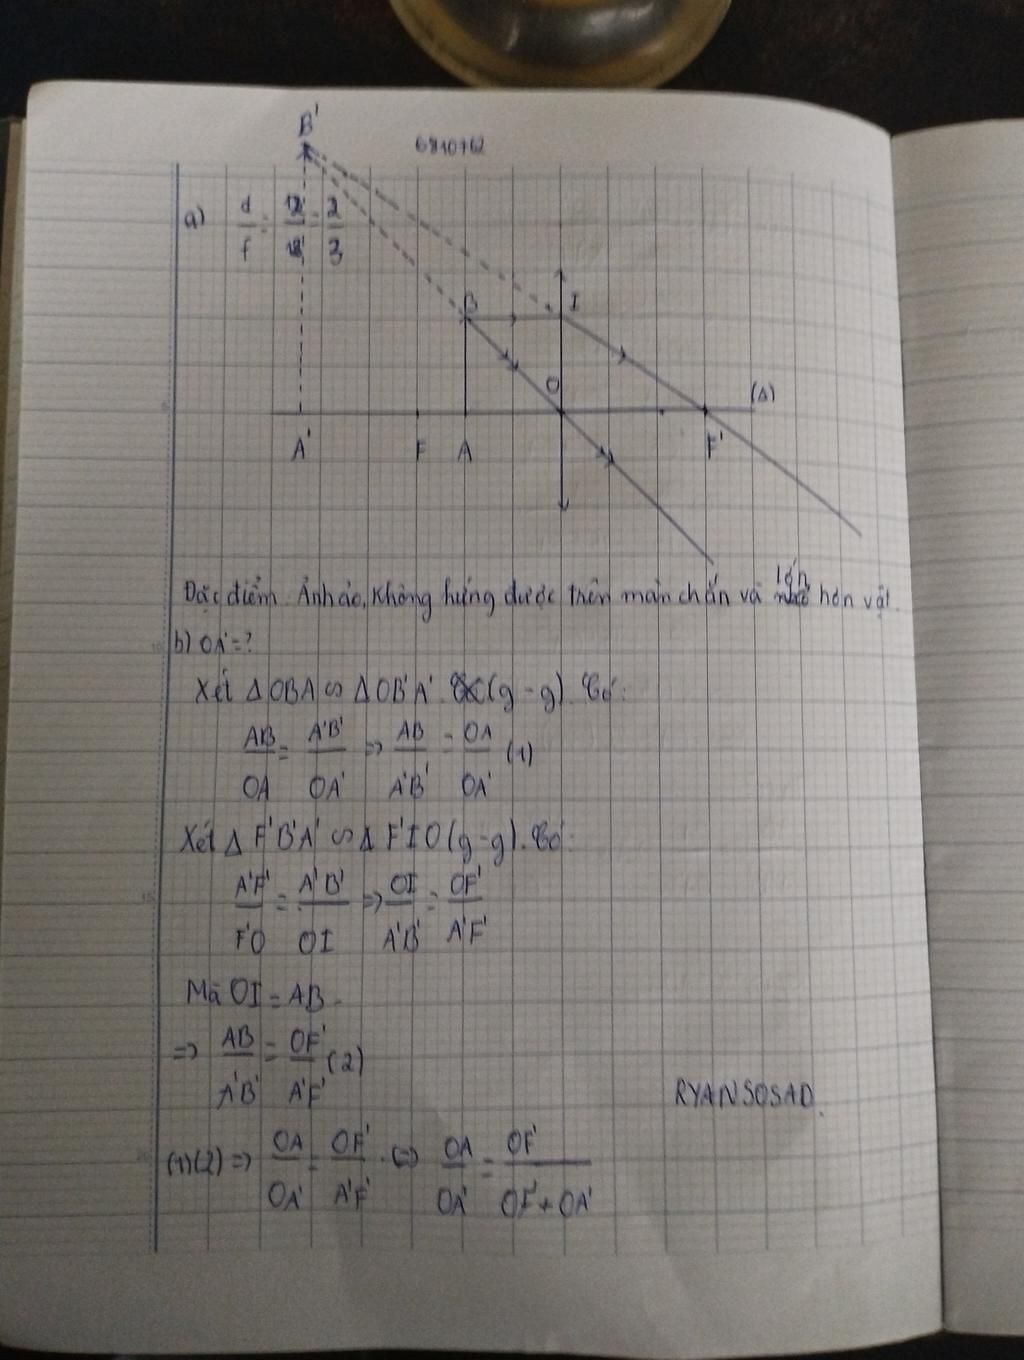 B'
6810762
a) d/f = 12/18 = 2/3
B I
O (Δ)
A' F A F'
Đặc điểm: Ảnh ảo, không hứng được trên màn chắn và lớn hơn vật.
b) OA' = ?
Xét Δ OBA ∽ Δ OB'A' (g-g). Có:
AB/OA = A'B'/OA' => AB/A'B' = OA/OA' (1)
Xét Δ F'B'A' ∽ Δ F'IO (g-g). Có:
A'F'/F'O = A'B'/OI => OI/A'B' = OF'/A'F'
Mà OI = AB
=> AB/A'B' = OF'/A'F' (2)
RYANSOSAD.
(1)(2) => OA/OA' = OF'/A'F' <=> OA/OA' = OF'/OF'+OA'